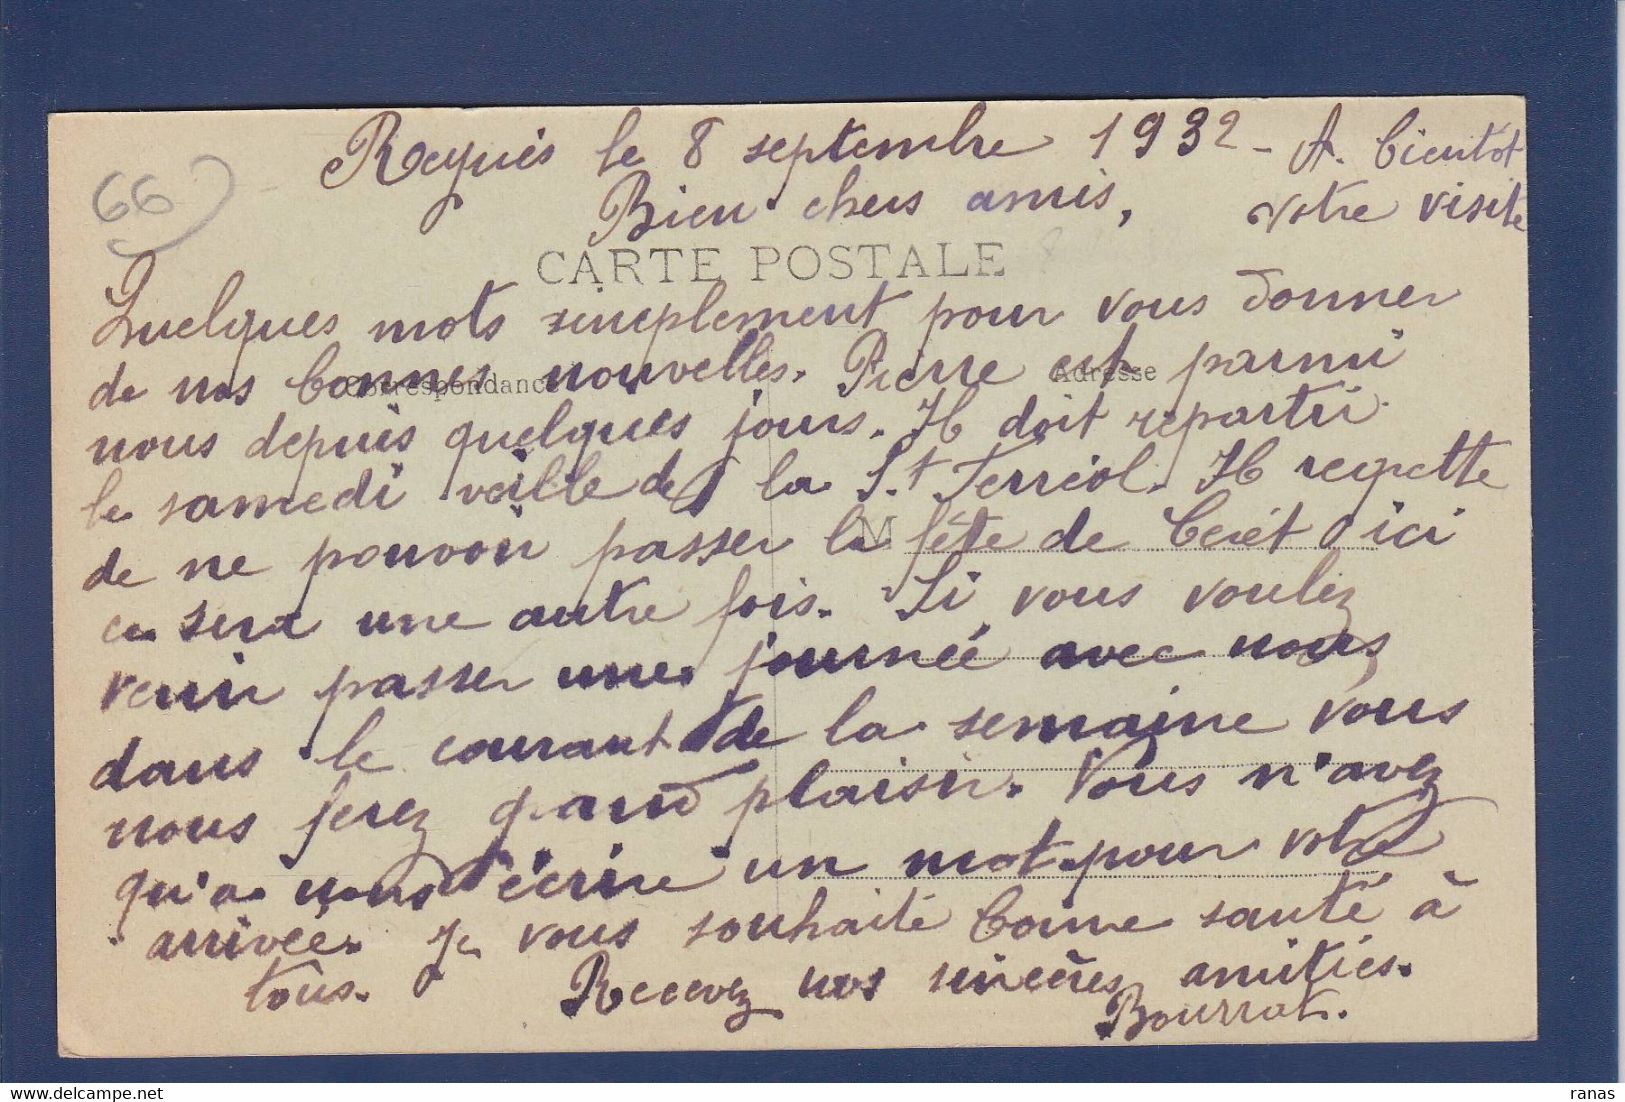 66
Reynès le 8 septembre 1932 - A bientôt
Bien chers amis, votre visite
CARTE POSTALE
Quelques mots simplement pour vous donner
de nos bonnes nouvelles. Pierre est parmi
Correspondance Adresse
nous depuis quelques jours. Il doit repartir
le samedi veille de la St Ferréol. Il regrette
de ne pouvoir passer la fête de Céret ici
M
ce sera une autre fois. Si vous voulez
venir passer une journeé avec nous
dans le courant de la semaine vous
nous ferez grand plaisir. Vous n'avez
qu'a nous écrire un mot pour votre
arrivée. Je vous souhaite bonne santé à
tous. Recevez nos sincères amitiés.
Bourrat.
delcampe.net
ranas